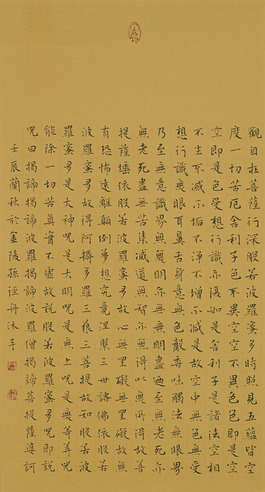 觀自在菩薩行深般若波羅蜜多時照見五蘊皆空
度一切苦厄舍利子色不異空空不異色色即是空
空即是色受想行識亦復如是舍利子是諸法空相
不生不滅不垢不淨不增不減是故空中無色無受
想行識無眼耳鼻舌身意無色聲香味觸法無眼界
乃至無意識界無無明亦無無明盡乃至無老死亦
無老死盡無苦集滅道無智亦無得以無所得故菩
提薩埵依般若波羅蜜多故心無罣礙無罣礙故無
有恐怖遠離顛倒夢想究竟涅槃三世諸佛依般若
波羅蜜多故得阿耨多羅三藐三菩提故知般若波
羅蜜多是大神咒是大明咒是無上咒是無等等咒
能除一切苦真實不虛故說般若波羅蜜多咒即說
咒曰揭諦揭諦波羅揭諦波羅僧揭諦菩提薩婆訶
壬辰蘭秋於金陵孫丹沐手